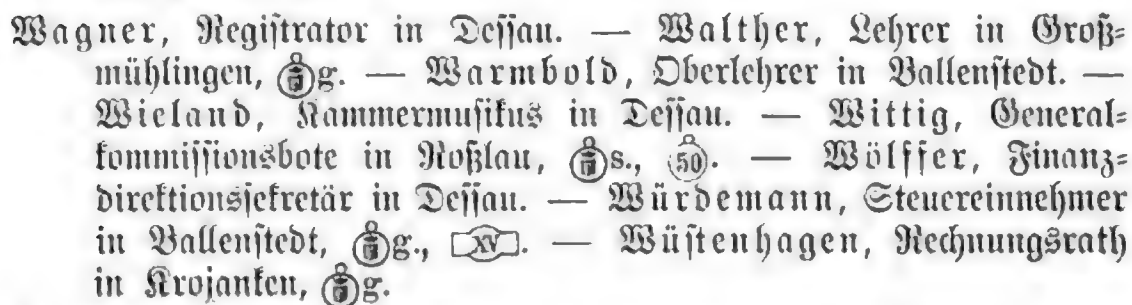 Wagner, Regiſtrator in Deſſau. — Walther, Lehrer in Groß-
mühlingen, g. — Warmbold, Oberlehrer in Ballenſtedt. —
Wieland, Kammermuſikus in Deſſau. — Wittig, General-
kommiſſionsbote in Roßlau, s., 50. — Wölffer, Finanz-
direktionsſekretär in Deſſau. — Würdemann, Steuereinnehmer
in Ballenſtedt, g., XV. — Wüſtenhagen, Rechnungsrath
in Krojanken, g.